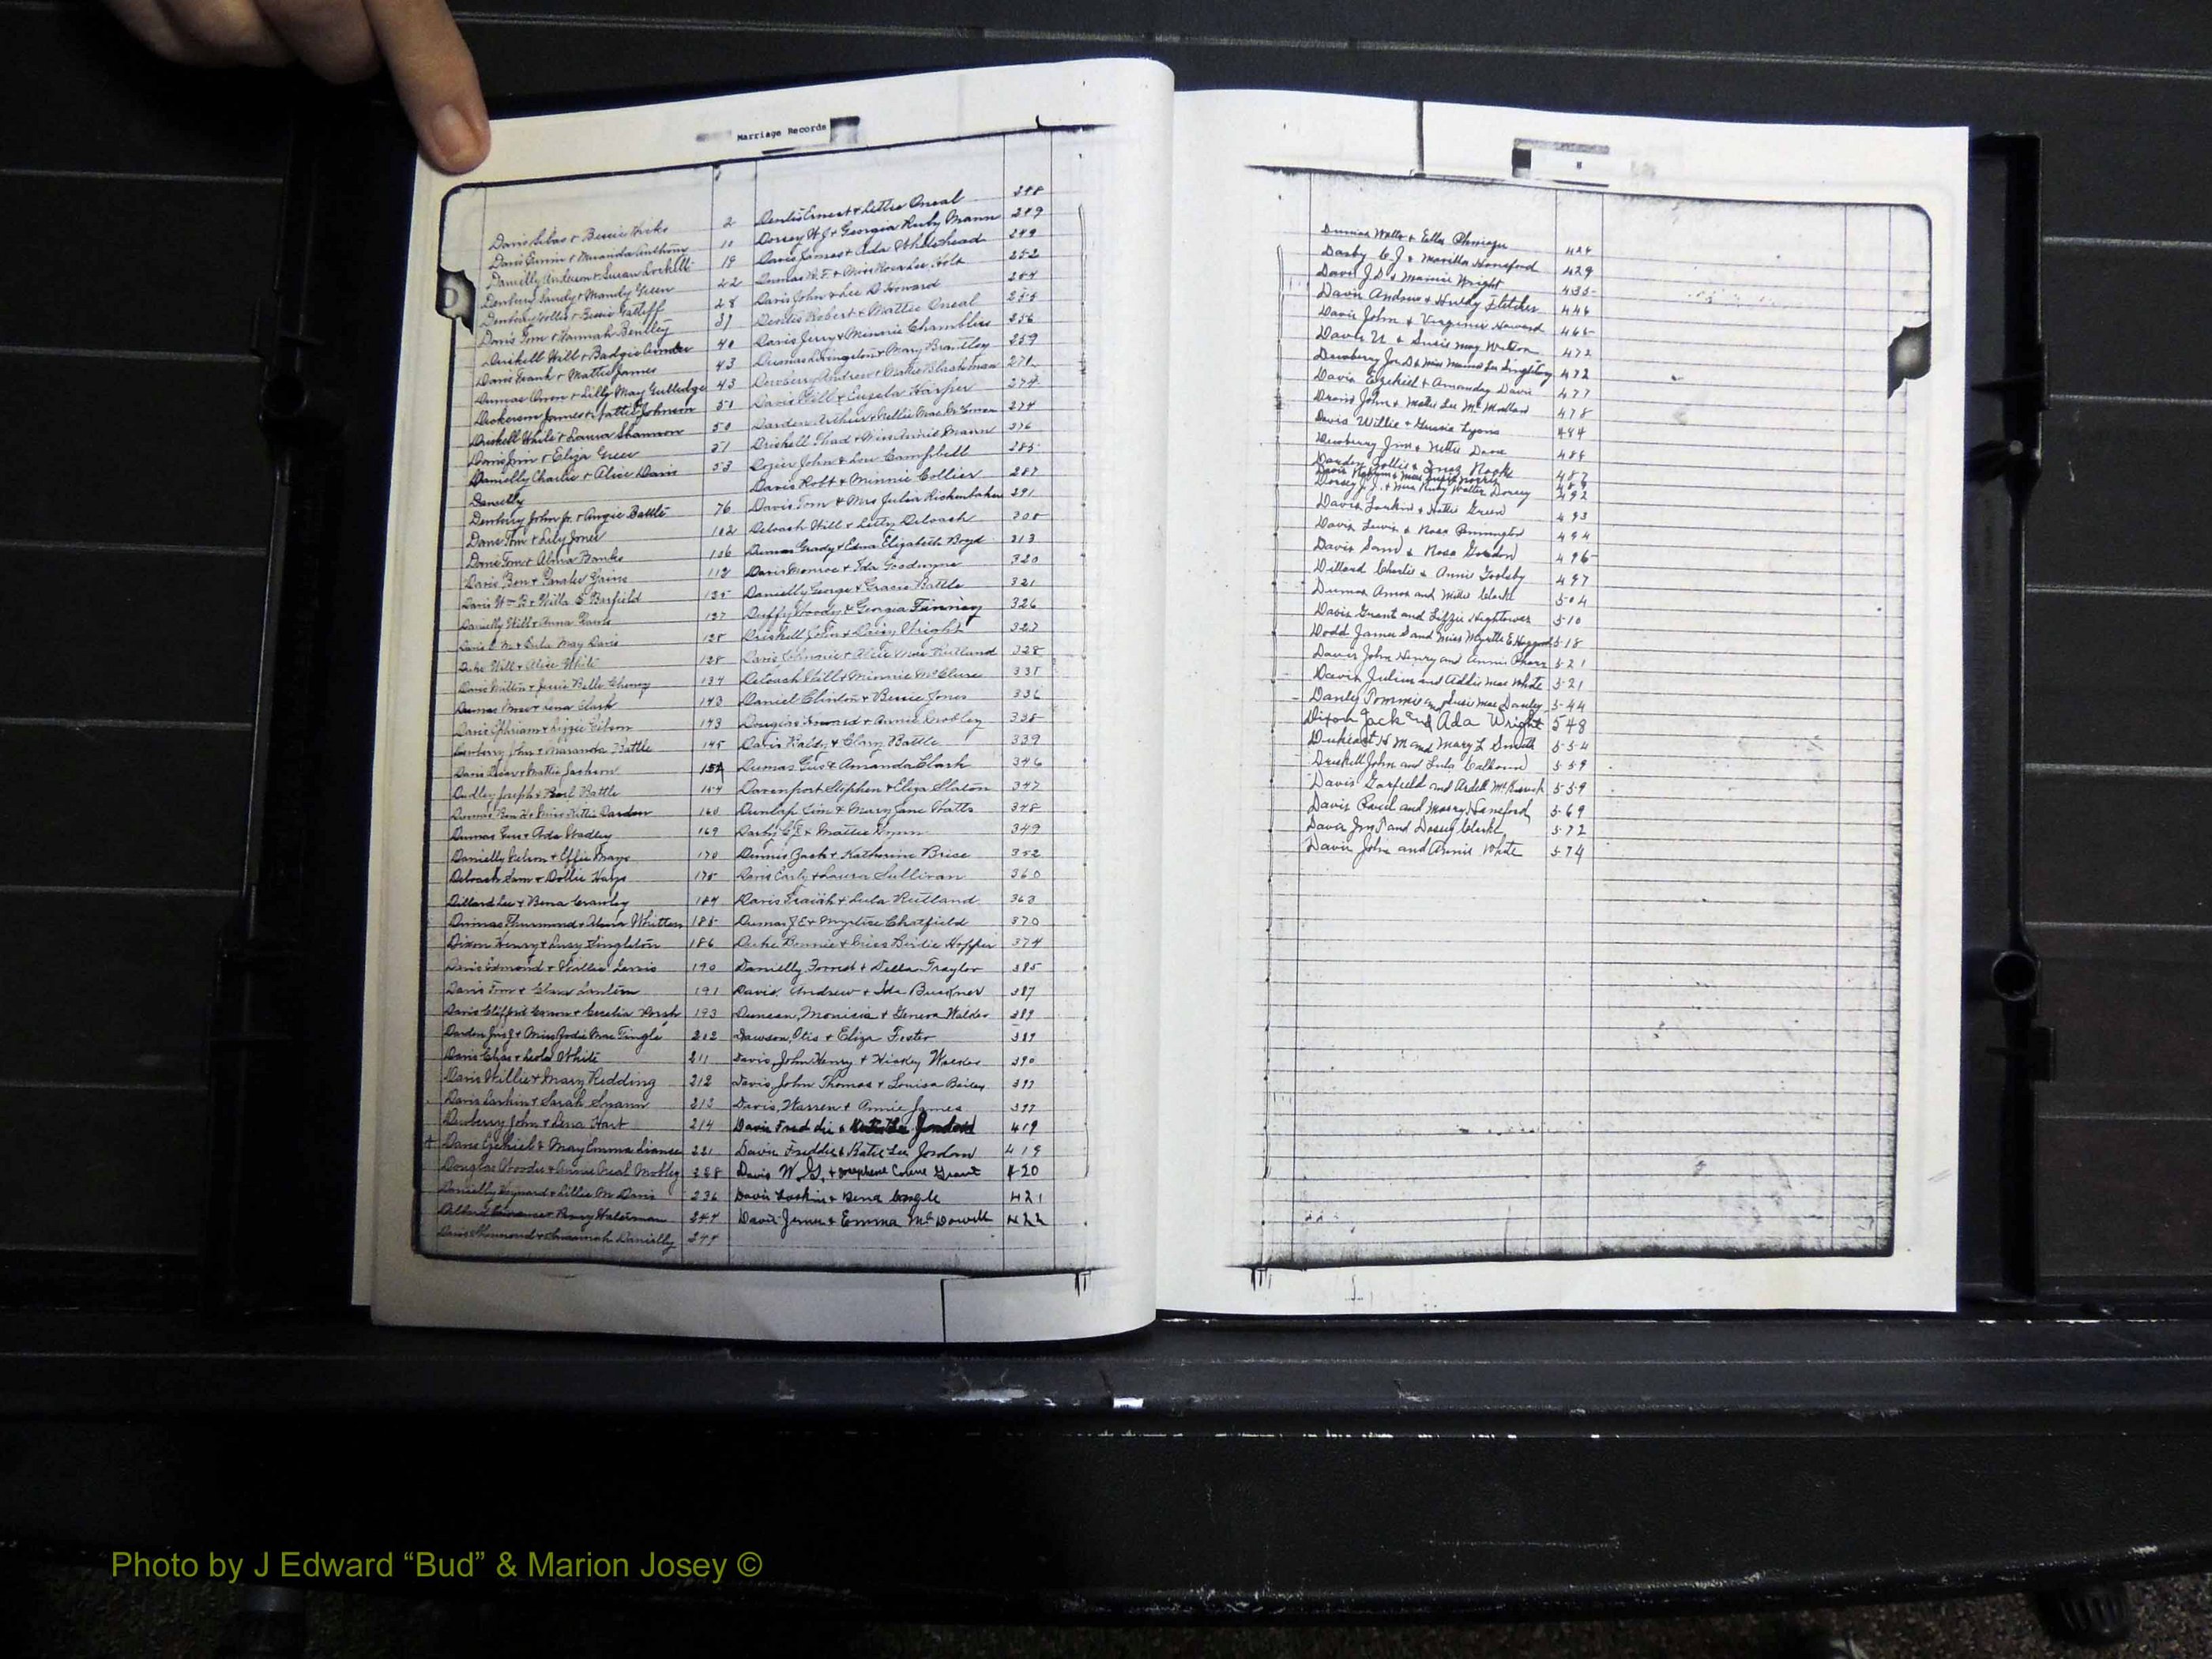 Marriage Records
D
Davis Silas & Bessie Hicks 2
Davis Ermin & Maranda Anthony 10
Danielly Anderson & Susan Lockett 19
Dewberry Sandy & Mandy Green 22
Dewberry Hollis & Bessie Gatliff 28
Davis Tom & Hannah Bentley 31
Driskell Will & Badgie Binder 40
Davis Frank & Mattie James 43
Dumas Aron & Lilly May Gulledge 43
Dickerson James & Hattie Johnson 51
Driskell White & Laura Shannon 50
Davis Jim & Eliza Greer 51
Danielly Charlie & Alice Davis 53
Danielly
Dewberry John Jr. & Angie Battle 76
Dane Tom & Lily Jones 102
Davis Tom & Alma Banks 106
Davis Ben & Gains 112
Davis Wm B & Willa S Barfield 125
Danielly Will & Anna 127
Davis C M & Eula May Davis 128
Duke Will & Alice White 128
Davis Milton & Jessie Belle Cheney 134
Dumas & Lena Clark 143
Davis Ephriam & Lizzie Gibson 143
Dewberry John & Maranda Battle 145
Davis Oscar & Mattie Jackson 152
Dudley Joseph & Pearl Battle 154
Dumas & Miss Kittie Darden 160
Dumas Gus & Ada Wadley 169
Danielly Nelson & Effie Mays 170
Deloach Sam & Dollie Hays 175
Dillard Lee & Bena Crawley 184
Dumas Thurmond & Whitten 185
Dixon Henry & Lucy Singleton 186
Davis Edmond & Willie Lewis 190
Davis Tom & Clara 191
Davis Clifford & Cecelia 193
Darden Jas J & Miss Jodie Mae Tingle 202
Davis Chas & Leola White 211
Davis Willie & Mary Redding 212
Davis Larkin & Sarah Swann 213
Dewberry John & Lena Hart 214
Dane Ezekiel & May Emma 221
Douglas Woodie & Annie Neal Mobley 228
Danielly & Lillie M Davis 236
244
Davis & Susannah Danielly 244
Dents Ernest & Lettie Oneal 248
Dorsey W J & Georgia Ruby Mann 249
Davis James & Ada Whitehead 249
Dumas R. F. & Miss Rosa Lee Holt 252
Davis John & Lee D Howard 254
Dents Robert & Mattie Oneal 255
Davis Jerry & Minnie Chambliss 256
Dumas Livingston & Mary Brantley 259
Dewberry Andrew & Blackman 271
Davis Will & Eugela Harper 274
Darden Arthur & Nellie Mae 274
Driskell Thad & Miss Annie Mann 276
Dozier John & Lou Campbell 285
Davis Robt & Minnie Collier 287
Davis Tom & Mrs Julia Richenbaker 291
Deloach Will & Letty Deloach 308
Dumas Grady & Edna Elizabeth Boyd 313
Davis Monroe & Ida Goodwyne 320
Danielly George & Gracie Battle 321
Duffy Woody & Georgia Finney 326
Driskell John & Daisy Wright 327
Davis Johnnie & Alice Mae Rutland 328
Deloach Will & Minnie McClure 331
Daniel Clinton & Bessie Jones 336
Douglas & Annie Mobley 338
Davis & Clary Battle 339
Dumas Gus & Amanda Clark 346
Davenport Stephen & Eliza Slaton 347
Dunlap Jim & Mary Jane Watts 348
Darby C J & Mattie Wynn 349
Dennis Zack & Katherine Brice 352
Davis Early & Laura Sullivan 360
Davis Isaiah & Lula Rutland 368
Dumas J E & Myrtice Chatfield 370
Duke Bonnie & Miss Birdie Hopper 374
Danielly Forrest & Della Traylor 385
Davis, Andrew & Ida Buckner 387
Duncan, & Geneva Walder 389
Dawson, Otis & Eliza Foster 389
Davis John Henry & Walker 390
Davis, John Thomas & Louisa Bailey 397
Davis, Warren & Annie James 397
Davis Freddie & Jordan 419
Davis Freddie & Katie Lee Jordan 419
Davis W. G. & Josephene Grant 420
Davis Larkin & Bena 421
Davis James & Emma McDowell 422
Dumas Watts & Ella 424
Darby C. J. & Marilla Hansford 429
Davis J D & Mamie Wright 435
Davis Andrew & Huldy Fletcher 446
Davis John & Virginia Howard 465
Davis U. & Susie May Watson 472
Dewberry & Miss Mamie Lu Singleton 472
Davis Ezekiel & Amanday Davis 477
Davis John & Matie Lee McMullan 478
Davis Willie & Gussie Lyons 484
Dewberry Jim & Nettie Davis 486
Darden Hollie & Inez 487
Dorsey J. J. & Miss Ruby Watter Dorsey 492
Davis Larkin & Hattie Green 493
Davis Lewis & Rosa Pennington 494
Davis Sam & Rosa Gordon 496
Dillard Charlie & Annie Goolsby 497
Dumas Amos and Millie Clark 504
Davis Grant and Lizzie Hightower 510
Dodd James S and Miss Myrtle E Haygood 518
Davis John Henry and Annie 521
Davis Julius and Addie Mae White 521
Danley Tommie and Susie Mae Danley 544
Dixon Jack and Ada Wright 548
H M and Mary L Smith 554
Driskell John and Lula Calhoun 559
Davis Garfield and Ardell 559
Davis and Mary Hansford 569
Davis Jim and Clark 572
Davis John and Annie White 574
Photo by J Edward “Bud” & Marion Josey ©